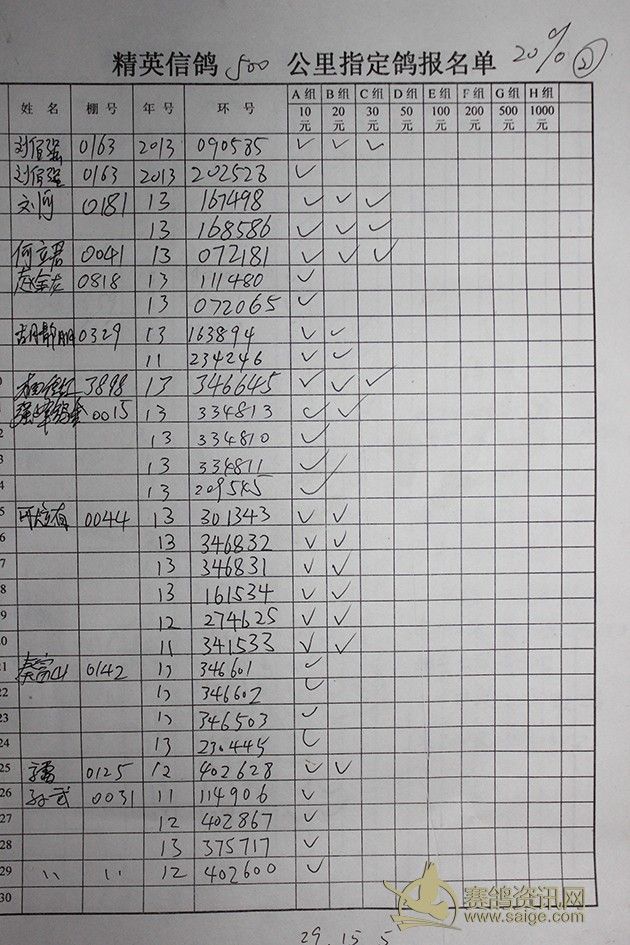 精英信鸽 500 公里指定鸽报名单 20% ②
姓名 棚号 年号 环号 A组 B组 C组 D组 E组 F组 G组 H组
10元 20元 30元 50元 100元 200元 500元 1000元
0163 2013 090585 ✓ ✓ ✓
0163 2013 202528 ✓
刘 0181 13 167498 ✓ ✓ ✓
13 168586 ✓ ✓ ✓
何立君 0041 13 072181 ✓ ✓ ✓
0818 13 111480 ✓
13 072065 ✓
胡静朋 0329 13 163894 ✓ ✓
11 234246 ✓ ✓
0 3898 13 346645 ✓ ✓ ✓
1 0015 13 334813 ✓ ✓
2 13 334810 ✓
3 13 334811 ✓
4 13 209545 ✓
5 0044 13 301343 ✓ ✓
6 13 346832 ✓ ✓
7 13 346831 ✓ ✓
8 13 161534 ✓ ✓
9 12 274625 ✓ ✓
20 11 341533 ✓ ✓
21 秦富山 0142 12 346601 ✓
22 12 346602 ✓
23 12 346503 ✓
24 13 230445 ✓
25 0125 12 402628 ✓ ✓
26 孙武 0031 11 114906 ✓
27 12 402867 ✓
28 13 375717 ✓
29 〃 〃 12 402600 ✓
30
29 15 5
赛鸽资讯网
www.saige.com